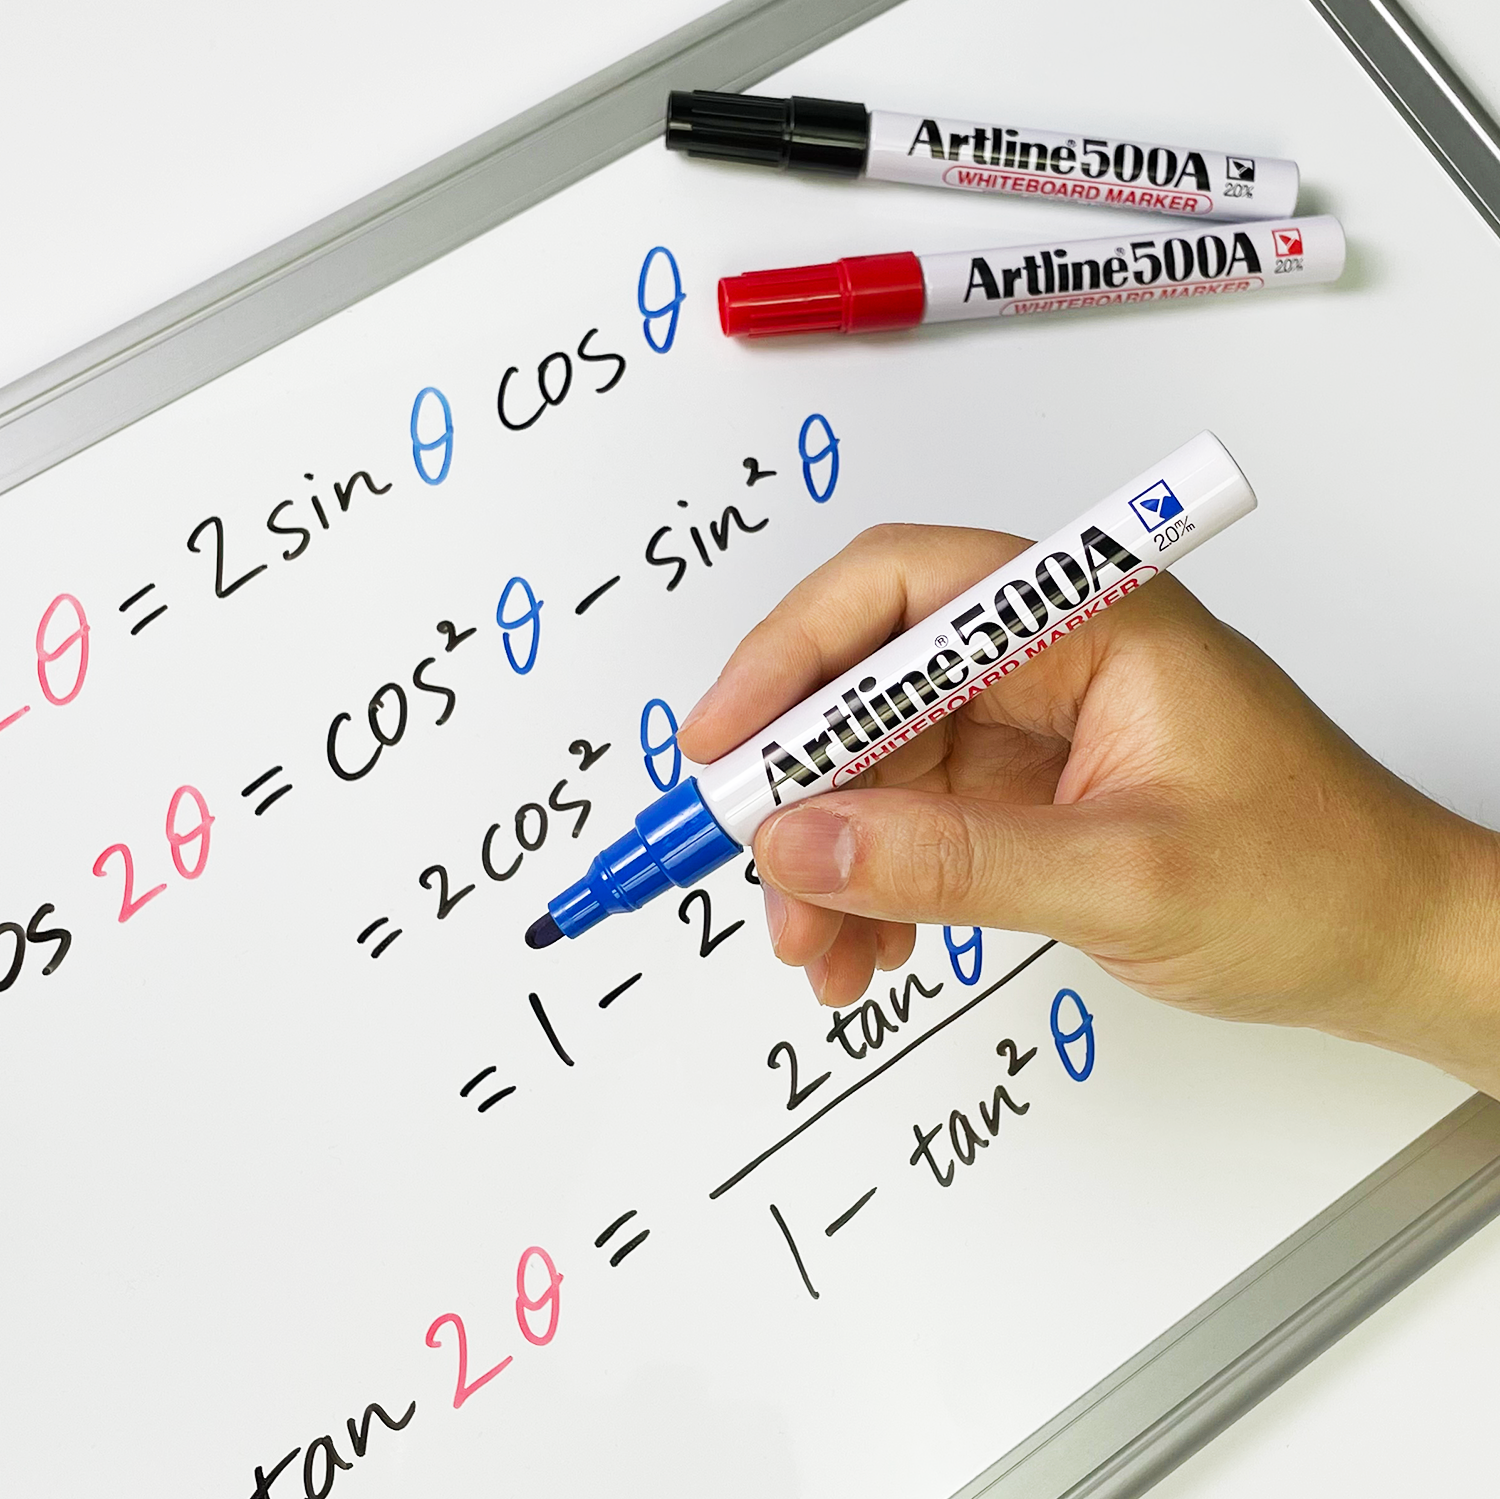 Artline®500A
WHITEBOARD MARKER
2.0m/m
Artline®500A
WHITEBOARD MARKER
2.0m/m
2θ = 2 sin θ cos θ
os 2θ = cos² θ − sin² θ
= 2 cos² θ
= 1 − 2
tan 2θ = 2 tan θ
1 − tan² θ
Artline®500A
WHITEBOARD MARKER
2.0m/m